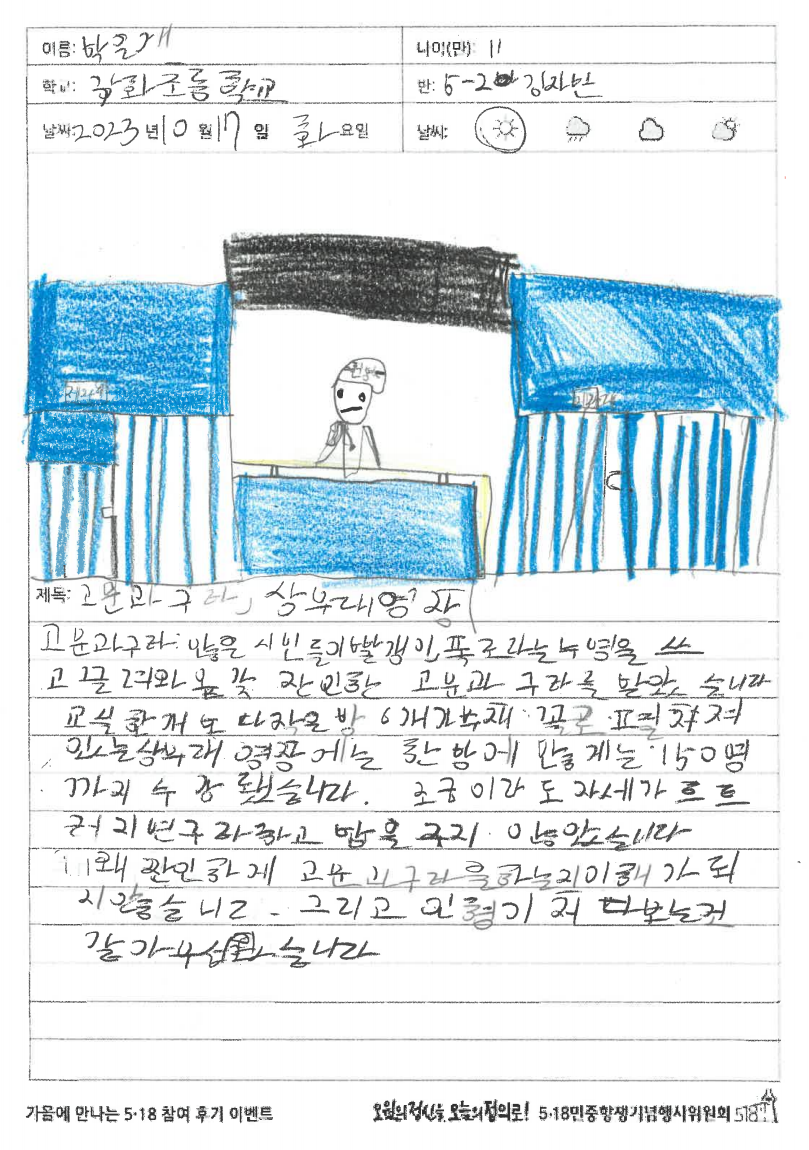 이름: 박은개
나이(만): 11
학교: 극화초등학교
반: 5-2
날짜: 2023년 10월 17일 화요일
날씨:
헌병
제목: 고문과 구타, 상무대 영창
고문과구타: 많은 시민들이 빨갱이, 폭도라는 누명을 쓰
고 끌려와 온갖 잔인한 고문과 구타를 받았습니다
교실 한개 보다 작은 방 6개가 부채꼴로 펼쳐져
있는 상무대 영창에는 한 방에 많게는 150명
까지 수감됐습니다. 조금이라도 자세가 흐트
러지면 구타하고 밥을 주지 않았습니다
왜 잔인하게 고문과 구타를 하는지 이해가 되
지 않습니다. 그리고 인형이 쳐다보는것
같아 무서웠습니다
가을에 만나는 5·18 참여 후기 이벤트
오월의 정신을 오늘의 정의로! 5·18민중항쟁기념행사위원회 518